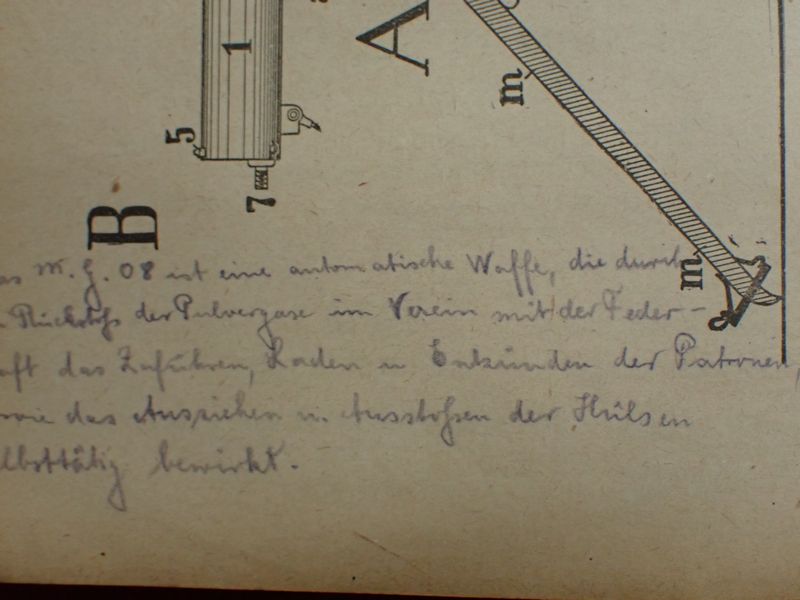 1
A
m
5
7
B
m
as M.G. 08 ist eine automatische Waffe, die durch
Rückstoß der Pulvergase im Verein mit der Feder-
aft das Zuführen, Laden u Entzünden der Patronen,
wie das Ausziehen u. Ausstoßen der Hülsen
lbsttätig bewirkt.